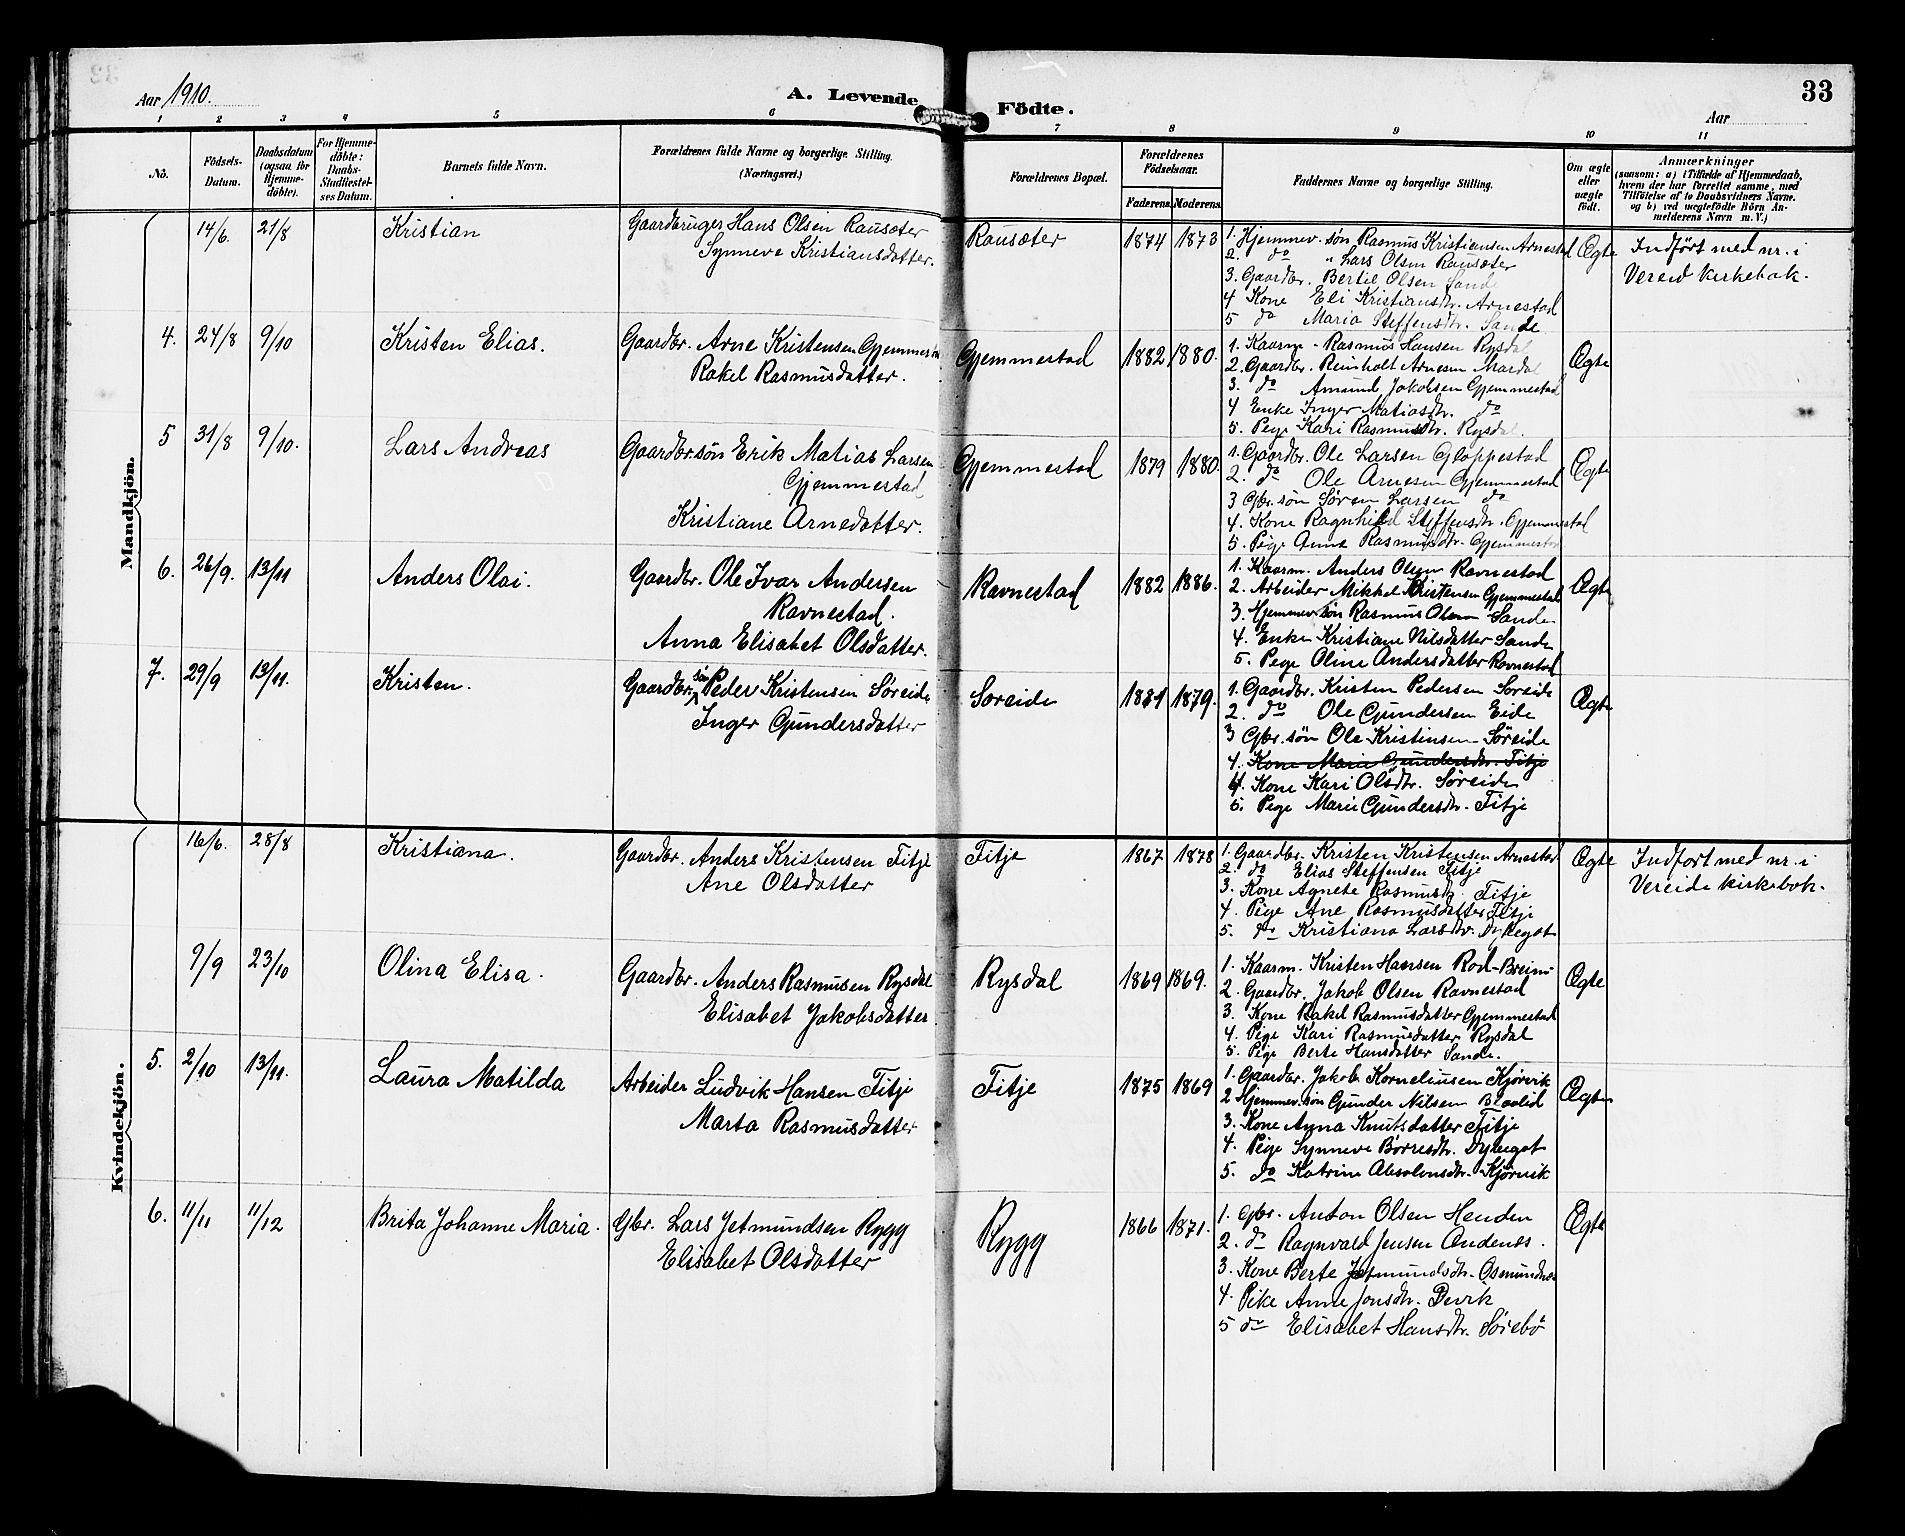 33
Aar 1910.
A. Levende Födte.
Aar
1 2 3 4 5 6 7 8 9 10 11
No.
Födsels-
Datum.
Daabsdatum
(ogsaa for
Hjemme-
döbte).
For Hjemme-
döbte:
Daabs-
Stadfæstel-
ses Datum.
Barnets fulde Navn.
Forældrenes fulde Navne og borgerlige Stilling.
(Næringsvei.)
Forældrenes Bopæl.
Forældrenes
Födselsaar.
Faderens. Moderens.
Faddernes Navne og borgerlige Stilling.
Om ægte
eller
uægte
födt.
Anmærkninger
(saasom: a) i Tilfælde af Hjemmedaab,
hvem der har forrettet samme, med
Tilföielse af to Daabsvidners Navne,
og b) ved uægtefödte Börn An-
melderens Navn m. V.)
Mandkjön.
14/6. 21/8 Kristian
Gaardbruger Hans Olsen Rausæter
Synneve Kristiansdatter.
Rausæter 1874 1873
1. Hjemmev. søn Rasmus Kristiansen Arnestad
2. do " Lars Olsen Rausæter
3. Gaardbr. Bertil Olsen Sande
4 Kone Eli Kristiansdtr. Arnestad
5 do Maria Steffensdtr. Sande
Ægte
Indført med nr. i
Vereid kirkebok.
4. 24/8 9/10 Kristen Elias.
Gaardbr. Arne Kristensen Gjemmestad
Rakel Rasmusdatter.
Gjemmestad 1882 1880.
1. Kaarm. Rasmus Hansen Rysdal
2. Gaardbr. Reinholt Arnesen Mardal
3. do Amund Jakobsen Gjemmestad
4 Enke Inger Matiasdtr. do
5. Pege Kari Rasmusdtr. Rysdal.
Ægte
5 31/8 9/10. Lars Andreas
Gaardbr.søn Erik Matias Larsen
Gjemmestad
Kristiane Arnedatter.
Gjemmestad 1879 1880.
1. Gaardbr. Ole Larsen Gloppestad
2. do Ole Arnesen Gjemmestad
3 Gbr. søn Søren Larsen do
4. Kone Ragnhild Steffensdtr. Gjemmestad
5. Pige Anna Rasmusdtr. Gjemmestad
Ægte
6. 26/9. 13/11 Anders Olai.
Gaardbr. Ole Ivar Andersen
Ravnestad.
Anna Elisabet Olsdatter.
Ravnestad 1882 1886.
1. Kaarm. Anders Olsen Ravnestad
2. Arbeider Mikkel Kristensen Gjemmestad
3. Hjemmev. søn Rasmus Olsen Sande
4. Enke Kristiane Nilsdatter Sande
5. Pege Oline Andersdatter Ravnestad
Ægte
7. 29/9 13/11. Kristen.
Gaardbr. søn Peder Kristensen Søreide
Inger Gundersdatter
Søreide 1881 1879.
1. Gaardbr. Kristen Pedersen Søreide
2. do Ole Gundersen Eide
3 Gbr. søn Ole Kristensen Søreide
4. Kone Marie Gundersdtr. Fitje
4. Kone Kari Olsdtr. Søreide
5. Pege Marie Gundersdtr. Fitje
Ægte
Kvindekjön.
16/6. 28/8 Kristiana.
Gaardbr. Anders Kristensen Fitje
Ane Olsdatter
Fitje 1867 1878
1. Gaardbr. Kristen Kristensen Arnestad
2. do Elias Steffensen Fitje
3. Kone Agnete Rasmusdtr. Fitje
4. Pige Ane Rasmusdatter Fitje
5. do Kristiana Larsdtr.
Ægte
Indført med nr. i
Vereide kirkebok.
9/9 23/10 Olina Elisa.
Gaardbr. Anders Rasmusen Rysdal
Elisabet Jakobsdatter.
Rysdal 1869 1869.
1. Kaarm. Kristen Hansen Rod-Breim
2. Gaardbr. Jakob Olsen Ravnestad
3. Kone Rakel Rasmusdatter Gjemmestad
4. Pige Kari Rasmusdatter Rysdal
5. Pige Berte Hansdatter Sande.
Ægte
5. 2/10 13/11. Laura Matilda
Arbeider Ludvik Hansen Fitje
Marta Rasmusdatter
Fitje 1875 1869
1. Gaardbr. Jakob Korneliusen Kjørvik
2 Hjemmev. søn Gunder Nilsen
3. Kone Anna Knutsdatter Fitje
4. Pige Synneve Børresdtr.
5. do Katrine Absalonsdtr. Kjørvik
Ægte
6. 11/11 11/12 Brita Johanne Maria.
Gbr. Lars Jetmundsen Rygg
Elisabet Olsdatter
Rygg 1866 1871.
1. Gbr. Anton Olsen Henden
2. do Ragnvald Jensen Andenes.
3. Kone Berte Jetmundsdtr. Osmundnes
4. Pike Anne Jonsdtr. Devik
5 do Elisabet Hansdtr. Sørebø
Ægte